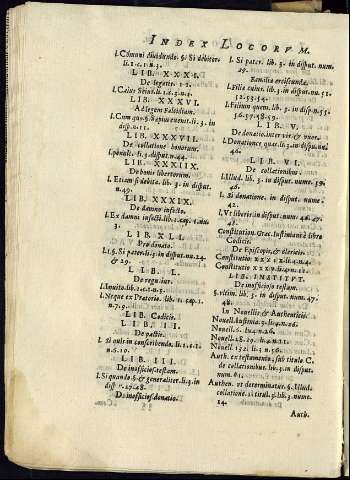 INDEX LOCORVM.
l. Comuni diuidundo. §. Si debitor.
li. 1. c. 1. n. 3.
LIB. XXXI.
De legatis. 1 2.
l. Caius Seius. li. 1. c. 3. n. 1.
LIB. XXXVI.
Ad legem Falcidiam.
l. Cum quo. §. sapius euenit. li. 3. in
disp. n. 11.
LIB. XXXVII.
De collatione bonorum.
l. penult. li. 3. disput. n. 44.
LIB. XXXIIX.
De bonis libertorum.
l. Etiam si debita. lib. 3. in disput.
n. 49.
LIB. XXXIX.
De damno infecto.
l. Ex damni infecti. lib. 1. cap.
n. 3.
LIB. XLI.
Pro donato.
l. 1. §. Si pater. li. 3. in disput. nu. 24
& 29.
LIB. L.
De reg. iur.
l. Inuito. lib. 1. c. 1. n. 3.
l. Neque ex Pratorio. lib. 1. cap. 1.
n. 7. 9.
LIB. Codicis.
LIB. II.
De pactis.
l. Si quis in conscribendo. li. 1. c. 1.
n. 5. 10.
LIB. III.
De inofficioso. testam.
l. Si quando. §. & generaliter. li. 3. in
disp. n. 17. 48.
De inofficiosis donatio.
l. Si pater. lib. 3. in disput. num.
29.
Familia erciscundæ.
l. Filia cuius. lib. 3. in disput. nu. 51.
52. 53. 54.
l. Filium quem. lib. 3. in disput. nu. 55.
56. 57. 58. 59.
LIB. V.
De donatio. inter vir. & vxor.
l. Donationes quas. li. 3. in disp. nu.
46.
LIB. VI.
De collationibus.
l. Illud. lib. 3. in disput. nume. 39.
46.
l. Si donatione. in disput. nume.
42.
l. Vt liberis. in disput. num. 46. 47.
48.
Constitution. Græc. Iustiniani è libro
Codicis.
De Episcopis, & clericis.
LIB. INSTITVT.
De inofficioso testam.
§. vltim. lib. 3. in disput. num. 47.
48.
In Nouellis & Authenticis.
Nouell. Iustini. 9. li. 4. n. 26.
Nouell. 6. li. 4. n. 26.
Nouell. 18. 29. li. 4. n. 11.
Nouell. 132. li. 3. n. 56.
Auth. ex testamento, sub titulo C.
de collationibus. lib. 3. in disput.
num. 61.
Authen. vt determinatur. §. Illud.
collatione. 2. titul. 3. lib. 3. nume.
14.
Auth.